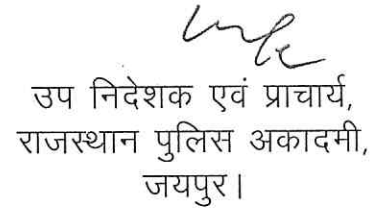 उप निदेशक एवं प्राचार्य,
राजस्थान पुलिस अकादमी,
जयपुर।